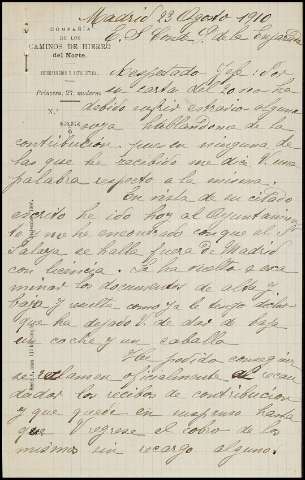 Madrid 23 Agosto 1910
COMPAÑIA
DE LOS
CAMINOS DE HIERRO
del Norte.
E. S. Conde V. de la
Respetado Jefe: Por
su carta del 20 no ha
debido sufrir estravio alguna
suya hablandome de la
contribución, pues en ninguna de
las que he recibido me dice V. una
palabra respecto a la misma.
En vista de su citado
escrito he ido hoy al Ayuntamien
to y me he encontrado con que el Sr.
se halla fuera de Madrid
con licencia. Se ha vuelto a exa
minar los documentos de alta y
baja y resulta como ya le tengo dicho
que ha dejado V. de dar de baja
un coche y un caballo
He podido conseguir
se reclamen oficialmente al recau
dador los recibos de contribución
y que quede en suspenso hasta
que V. regrese el cobro de los
mismos sin recargo alguno.